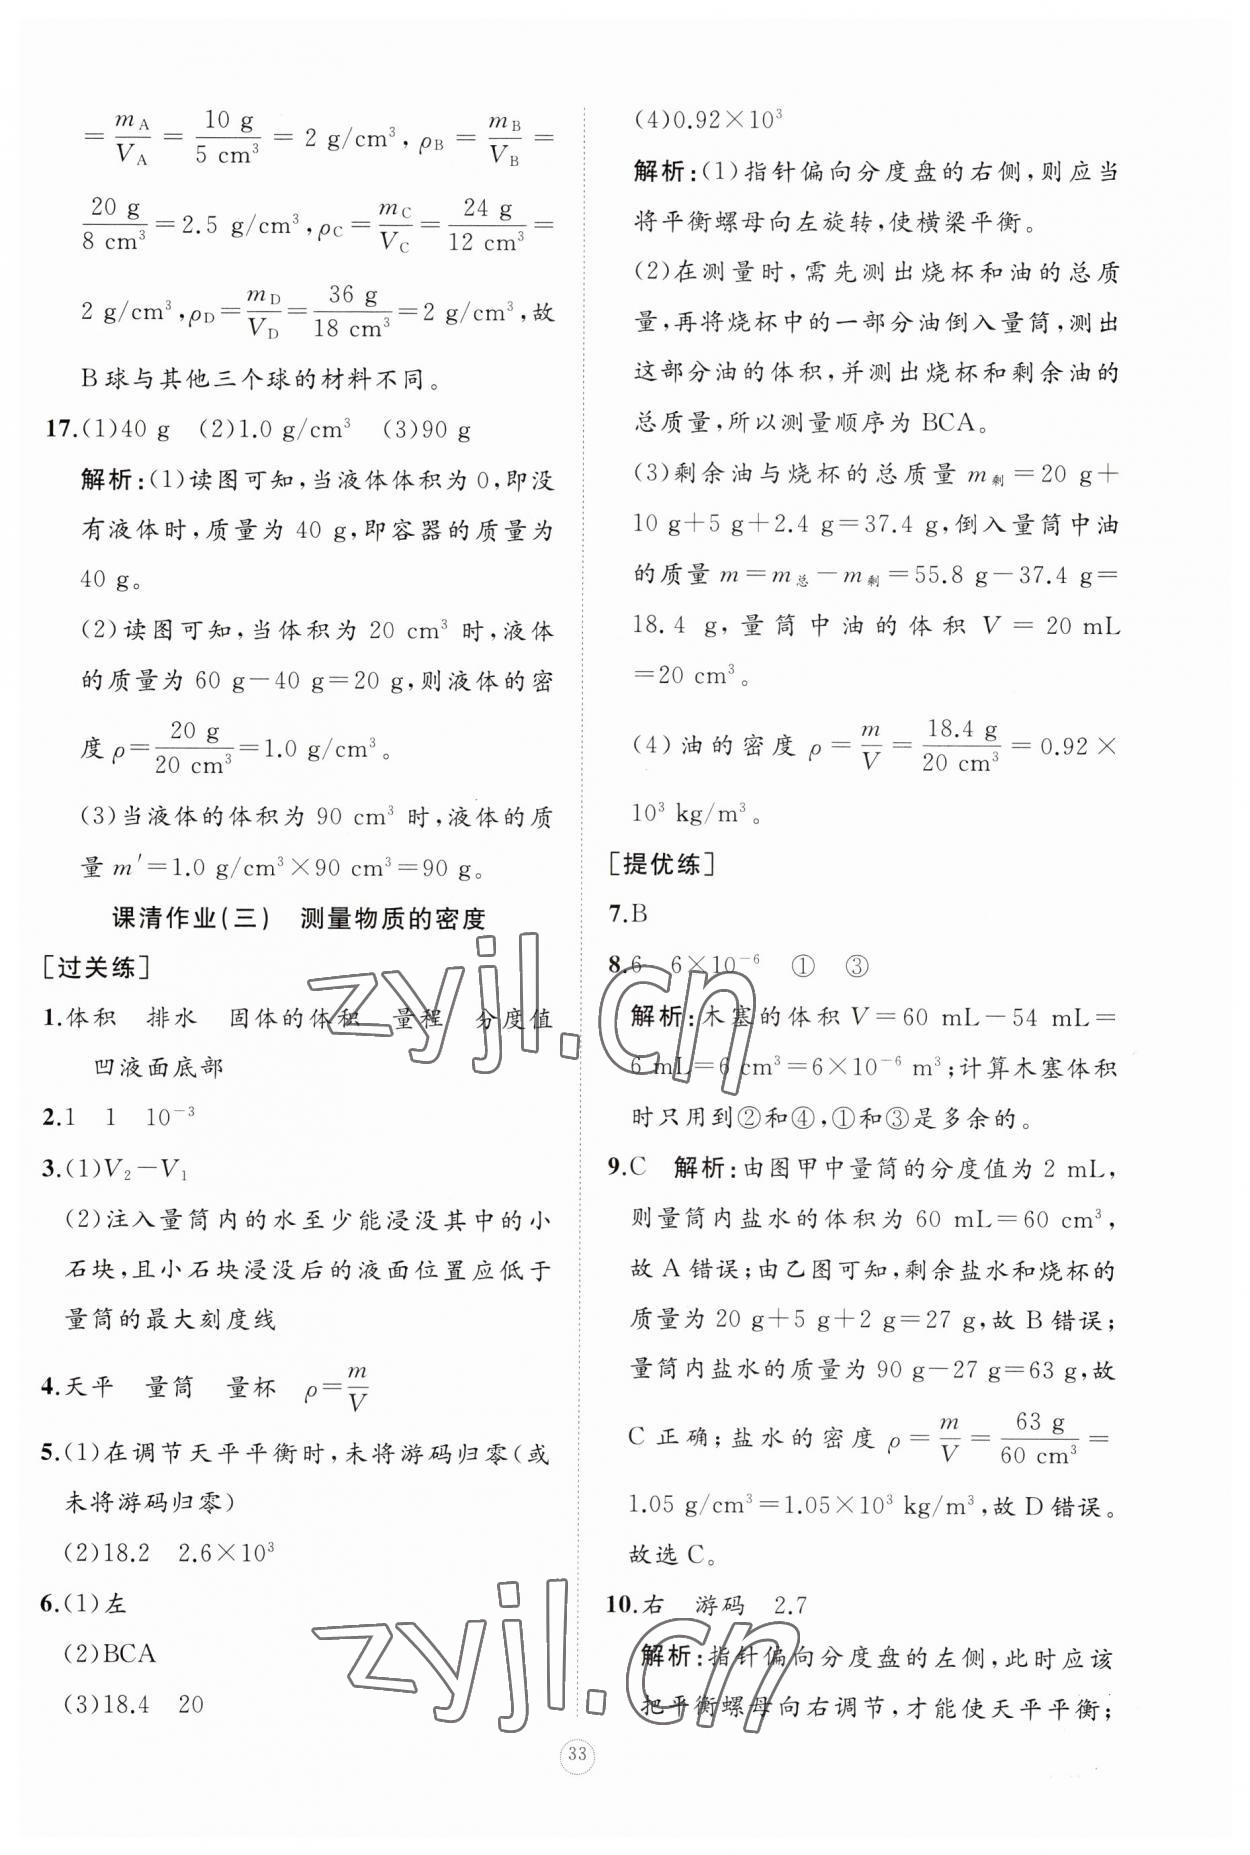 = m_A/V_A = 10 g/5 cm³ = 2 g/cm³, ρ_B = m_B/V_B =
20 g/8 cm³ = 2.5 g/cm³, ρ_C = m_C/V_C = 24 g/12 cm³ =
2 g/cm³, ρ_D = m_D/V_D = 36 g/18 cm³ = 2 g/cm³, 故
B球与其他三个球的材料不同。
17.(1)40 g (2)1.0 g/cm³ (3)90 g
解析:(1)读图可知,当液体体积为0,即没
有液体时,质量为 40 g,即容器的质量为
40 g。
(2)读图可知,当体积为 20 cm³ 时,液体
的质量为 60 g－40 g＝20 g,则液体的密
度 ρ＝20 g/20 cm³＝1.0 g/cm³。
(3)当液体的体积为 90 cm³ 时,液体的质
量 m′＝1.0 g/cm³×90 cm³＝90 g。
课清作业(三) 测量物质的密度
[过关练]
1.体积 排水 固体的体积 量程 分度值
凹液面底部
2.1 1 10⁻³
3.(1)V₂－V₁
(2)注入量筒内的水至少能浸没其中的小
石块,且小石块浸没后的液面位置应低于
量筒的最大刻度线
4.天平 量筒 量杯 ρ＝m/V
5.(1)在调节天平平衡时,未将游码归零(或
未将游码归零)
(2)18.2 2.6×10³
6.(1)左
(2)BCA
(3)18.4 20
(4)0.92×10³
解析:(1)指针偏向分度盘的右侧,则应当
将平衡螺母向左旋转,使横梁平衡。
(2)在测量时,需先测出烧杯和油的总质
量,再将烧杯中的一部分油倒入量筒,测出
这部分油的体积,并测出烧杯和剩余油的
总质量,所以测量顺序为 BCA。
(3)剩余油与烧杯的总质量 m剩＝20 g＋
10 g＋5 g＋2.4 g＝37.4 g,倒入量筒中油
的质量 m＝m总－m剩＝55.8 g－37.4 g＝
18.4 g,量筒中油的体积 V＝20 mL
＝20 cm³。
(4)油的密度 ρ＝m/V＝18.4 g/20 cm³＝0.92×
10³ kg/m³。
[提优练]
7.B
8.6 6×10⁻⁶ ① ③
解析:木塞的体积 V＝60 mL－54 mL＝
6 mL＝6 cm³＝6×10⁻⁶ m³;计算木塞体积
时只用到②和④,①和③是多余的。
9.C 解析:由图甲中量筒的分度值为 2 mL,
则量筒内盐水的体积为 60 mL＝60 cm³,
故 A 错误;由乙图可知,剩余盐水和烧杯的
质量为 20 g＋5 g＋2 g＝27 g,故 B 错误;
量筒内盐水的质量为 90 g－27 g＝63 g,故
C 正确;盐水的密度 ρ＝m/V＝63 g/60 cm³＝
1.05 g/cm³＝1.05×10³ kg/m³,故 D 错误。
故选 C。
10.右 游码 2.7
解析:指针偏向分度盘的左侧,此时应该
把平衡螺母向右调节,才能使天平平衡;
33
zyjl.cn
zyjl.cn